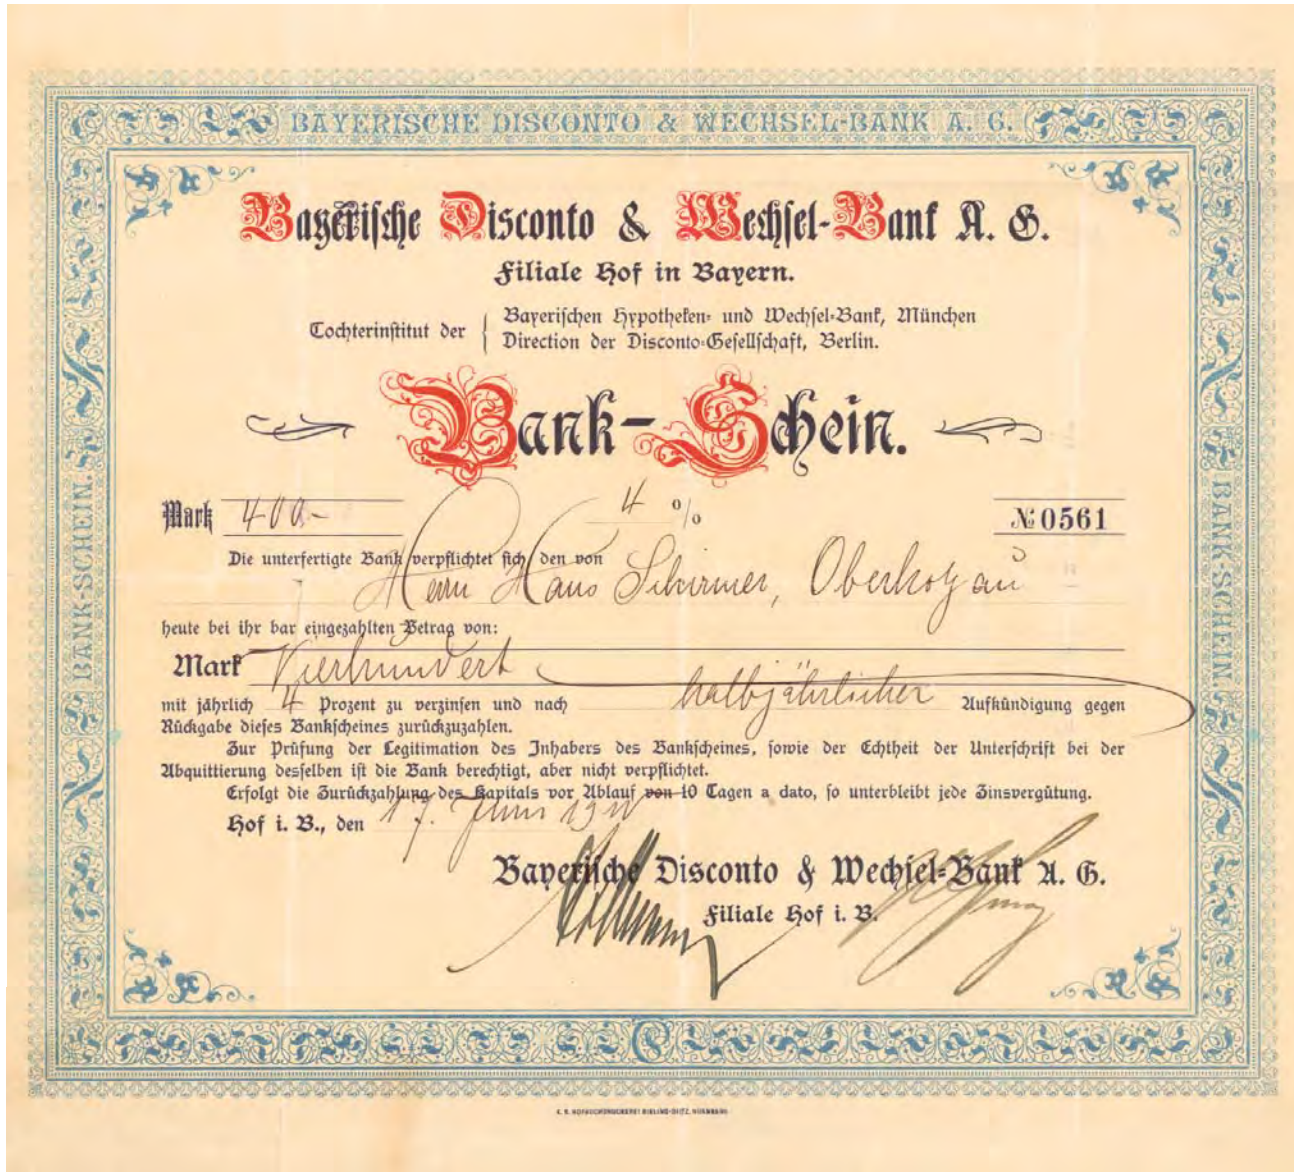 BAYERISCHE DISCONTO & WECHSEL-BANK A. G.
Bayerische Disconto & Wechsel-Bank A. G.
Filiale Hof in Bayern.
Tochterinstitut der { Bayerischen Hypotheken- und Wechsel-Bank, München
Direction der Disconto-Gesellschaft, Berlin.
Bank-Schein.
Mark 400.- 4 % № 0561
Die unterfertigte Bank verpflichtet sich den von
Herrn Hans Schirmer, Oberkotzau
heute bei ihr bar eingezahlten Betrag von:
Mark Vierhundert
mit jährlich 4 Prozent zu verzinsen und nach halbjährlicher Aufkündigung gegen
Rückgabe dieses Bankscheines zurückzuzahlen.
Zur Prüfung der Legitimation des Inhabers des Bankscheines, sowie der Echtheit der Unterschrift bei der
Abquittierung desselben ist die Bank berechtigt, aber nicht verpflichtet.
Erfolgt die Zurückzahlung des Kapitals vor Ablauf von 10 Tagen a dato, so unterbleibt jede Zinsvergütung.
Hof i. B., den 17. Juni
Bayerische Disconto & Wechsel-Bank A. G.
Filiale Hof i. B.
BANK-SCHEIN.
BANK-SCHEIN.